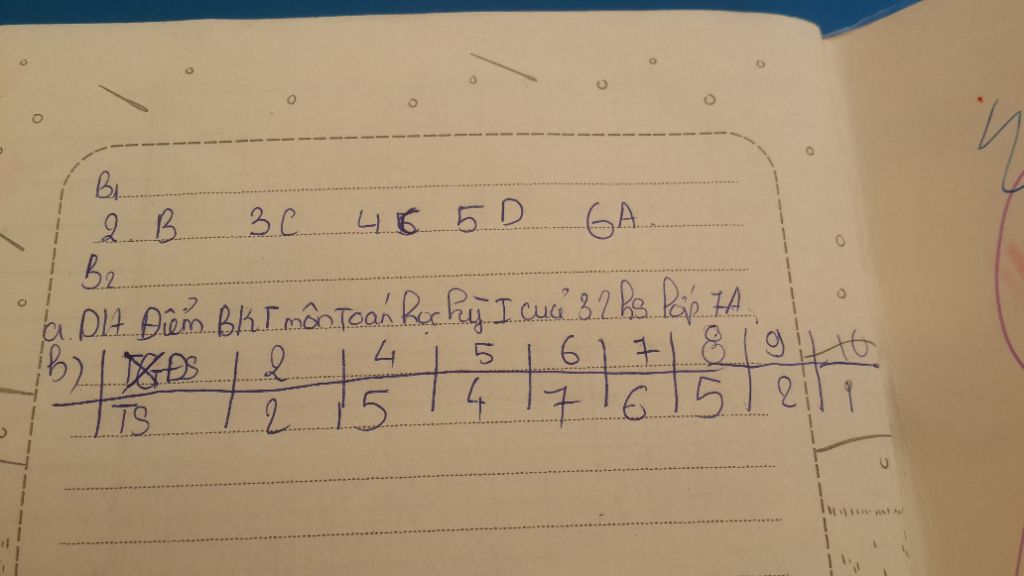 B1
2. B 3C 4 C 5 D 6A.
B2
a. DH Điểm BKT môn Toán học kỳ I của 32 hs lớp 7A.
B) | ĐS | 2 | 4 | 5 | 6 | 7 | 8 | 9 | 10
TS | 2 | 5 | 4 | 7 | 6 | 5 | 2 | 1